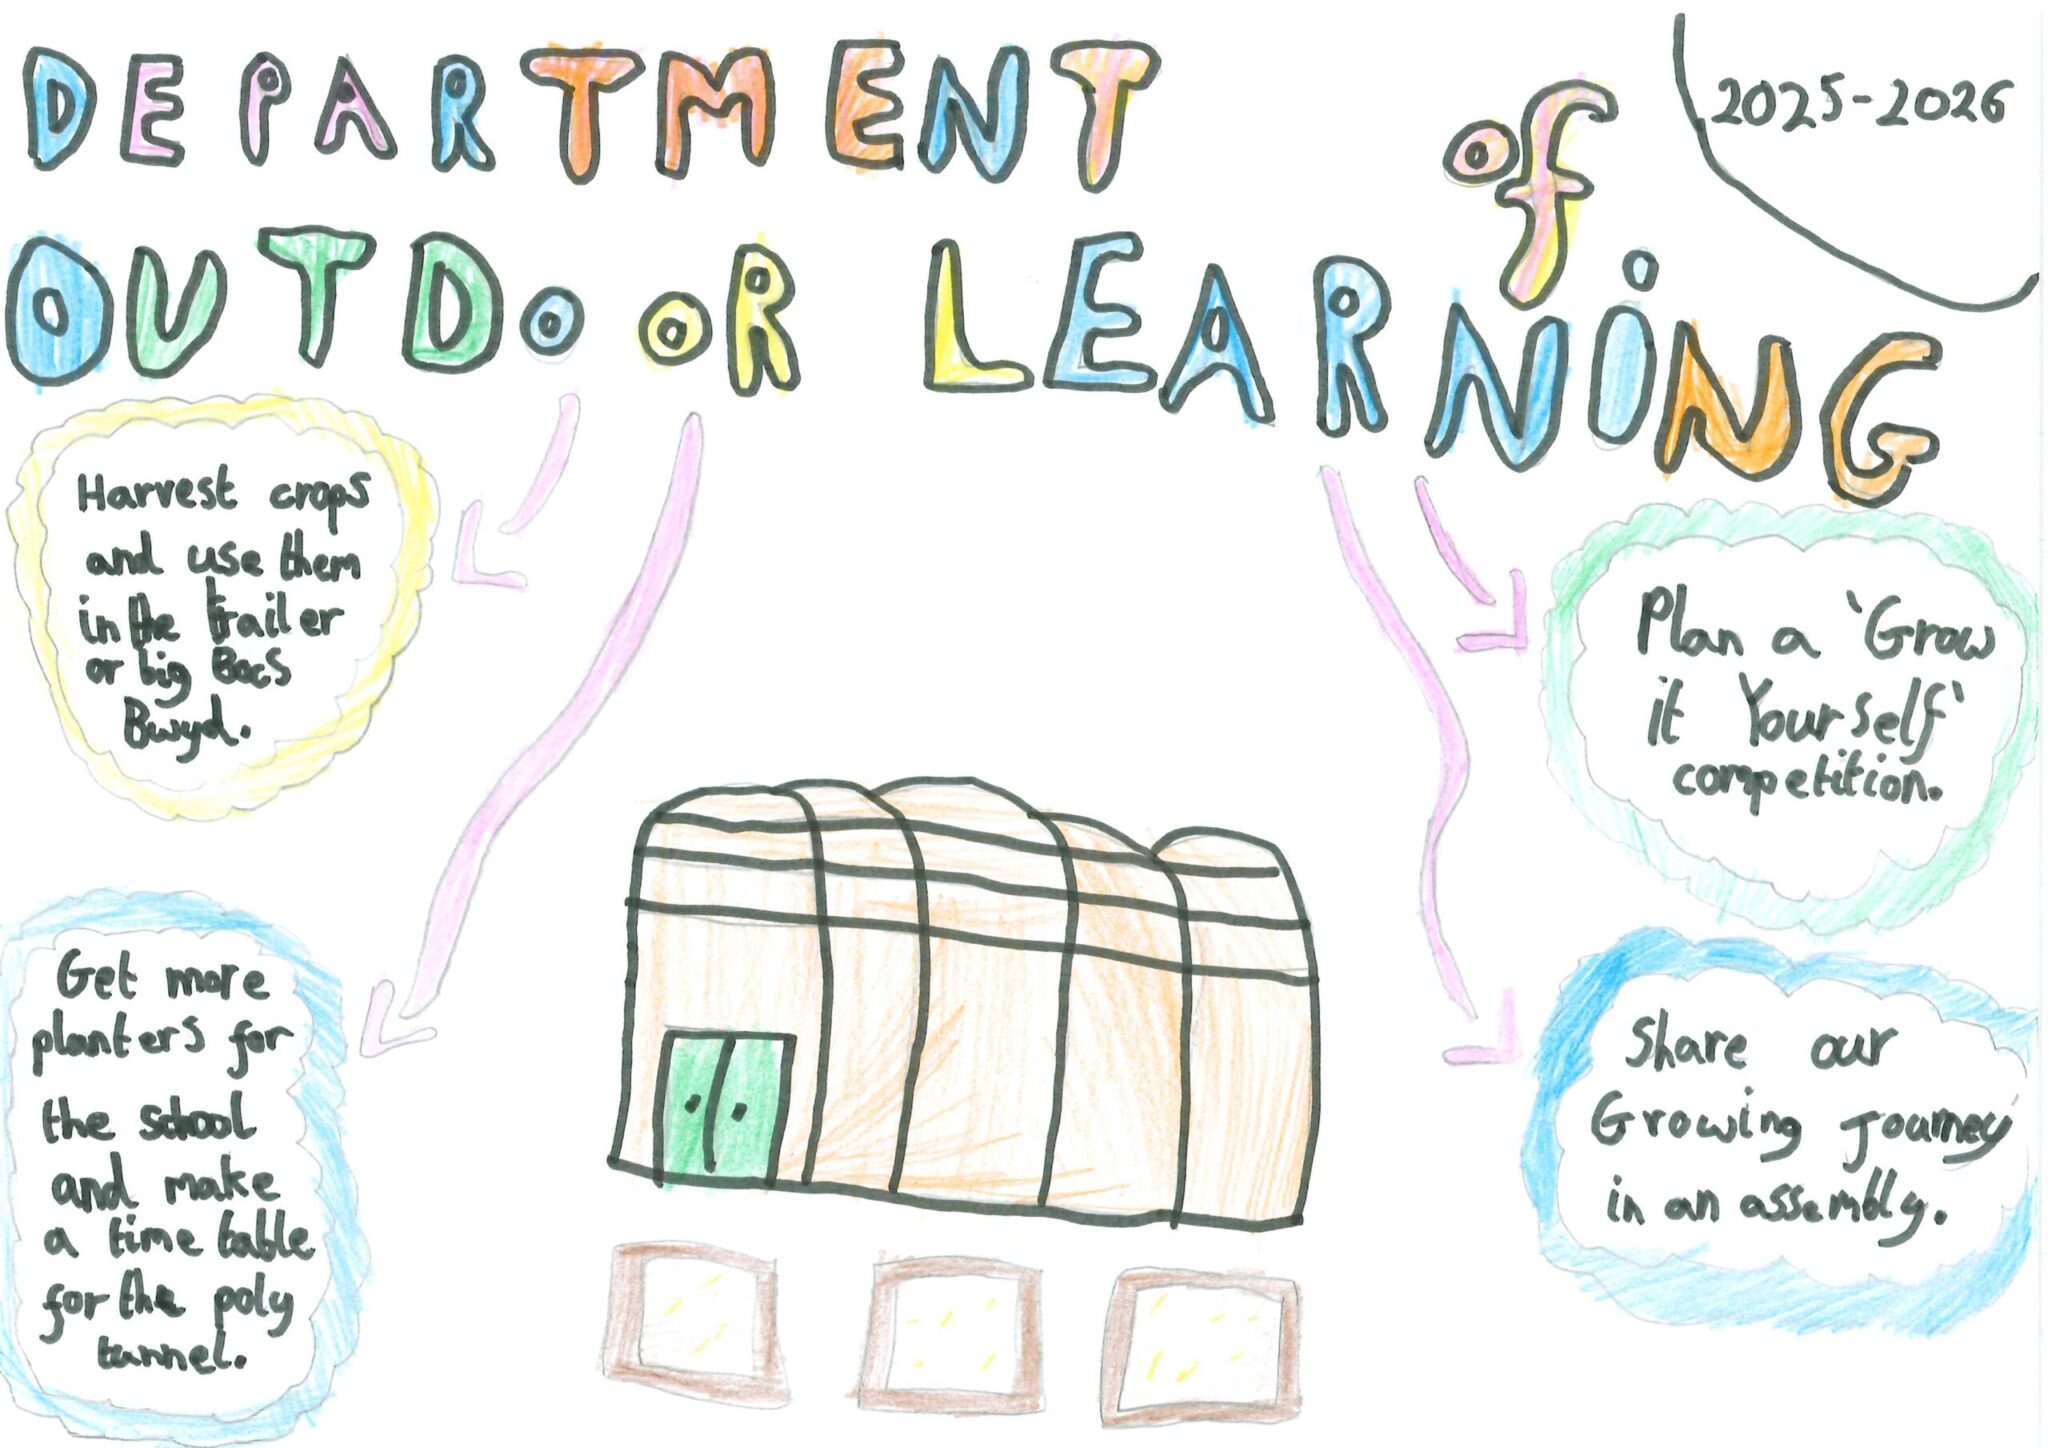 DEPARTMENT of
2025-2026
OUTDOOR LEARNING
Harvest crops
and use them
in the trailer
or big Bocs
Bwyd.
Get more
planters for
the school
and make
a time table
for the poly
tunnel.
Plan a 'Grow
it Yourself'
competition.
Share our
Growing Journey
in an assembly.